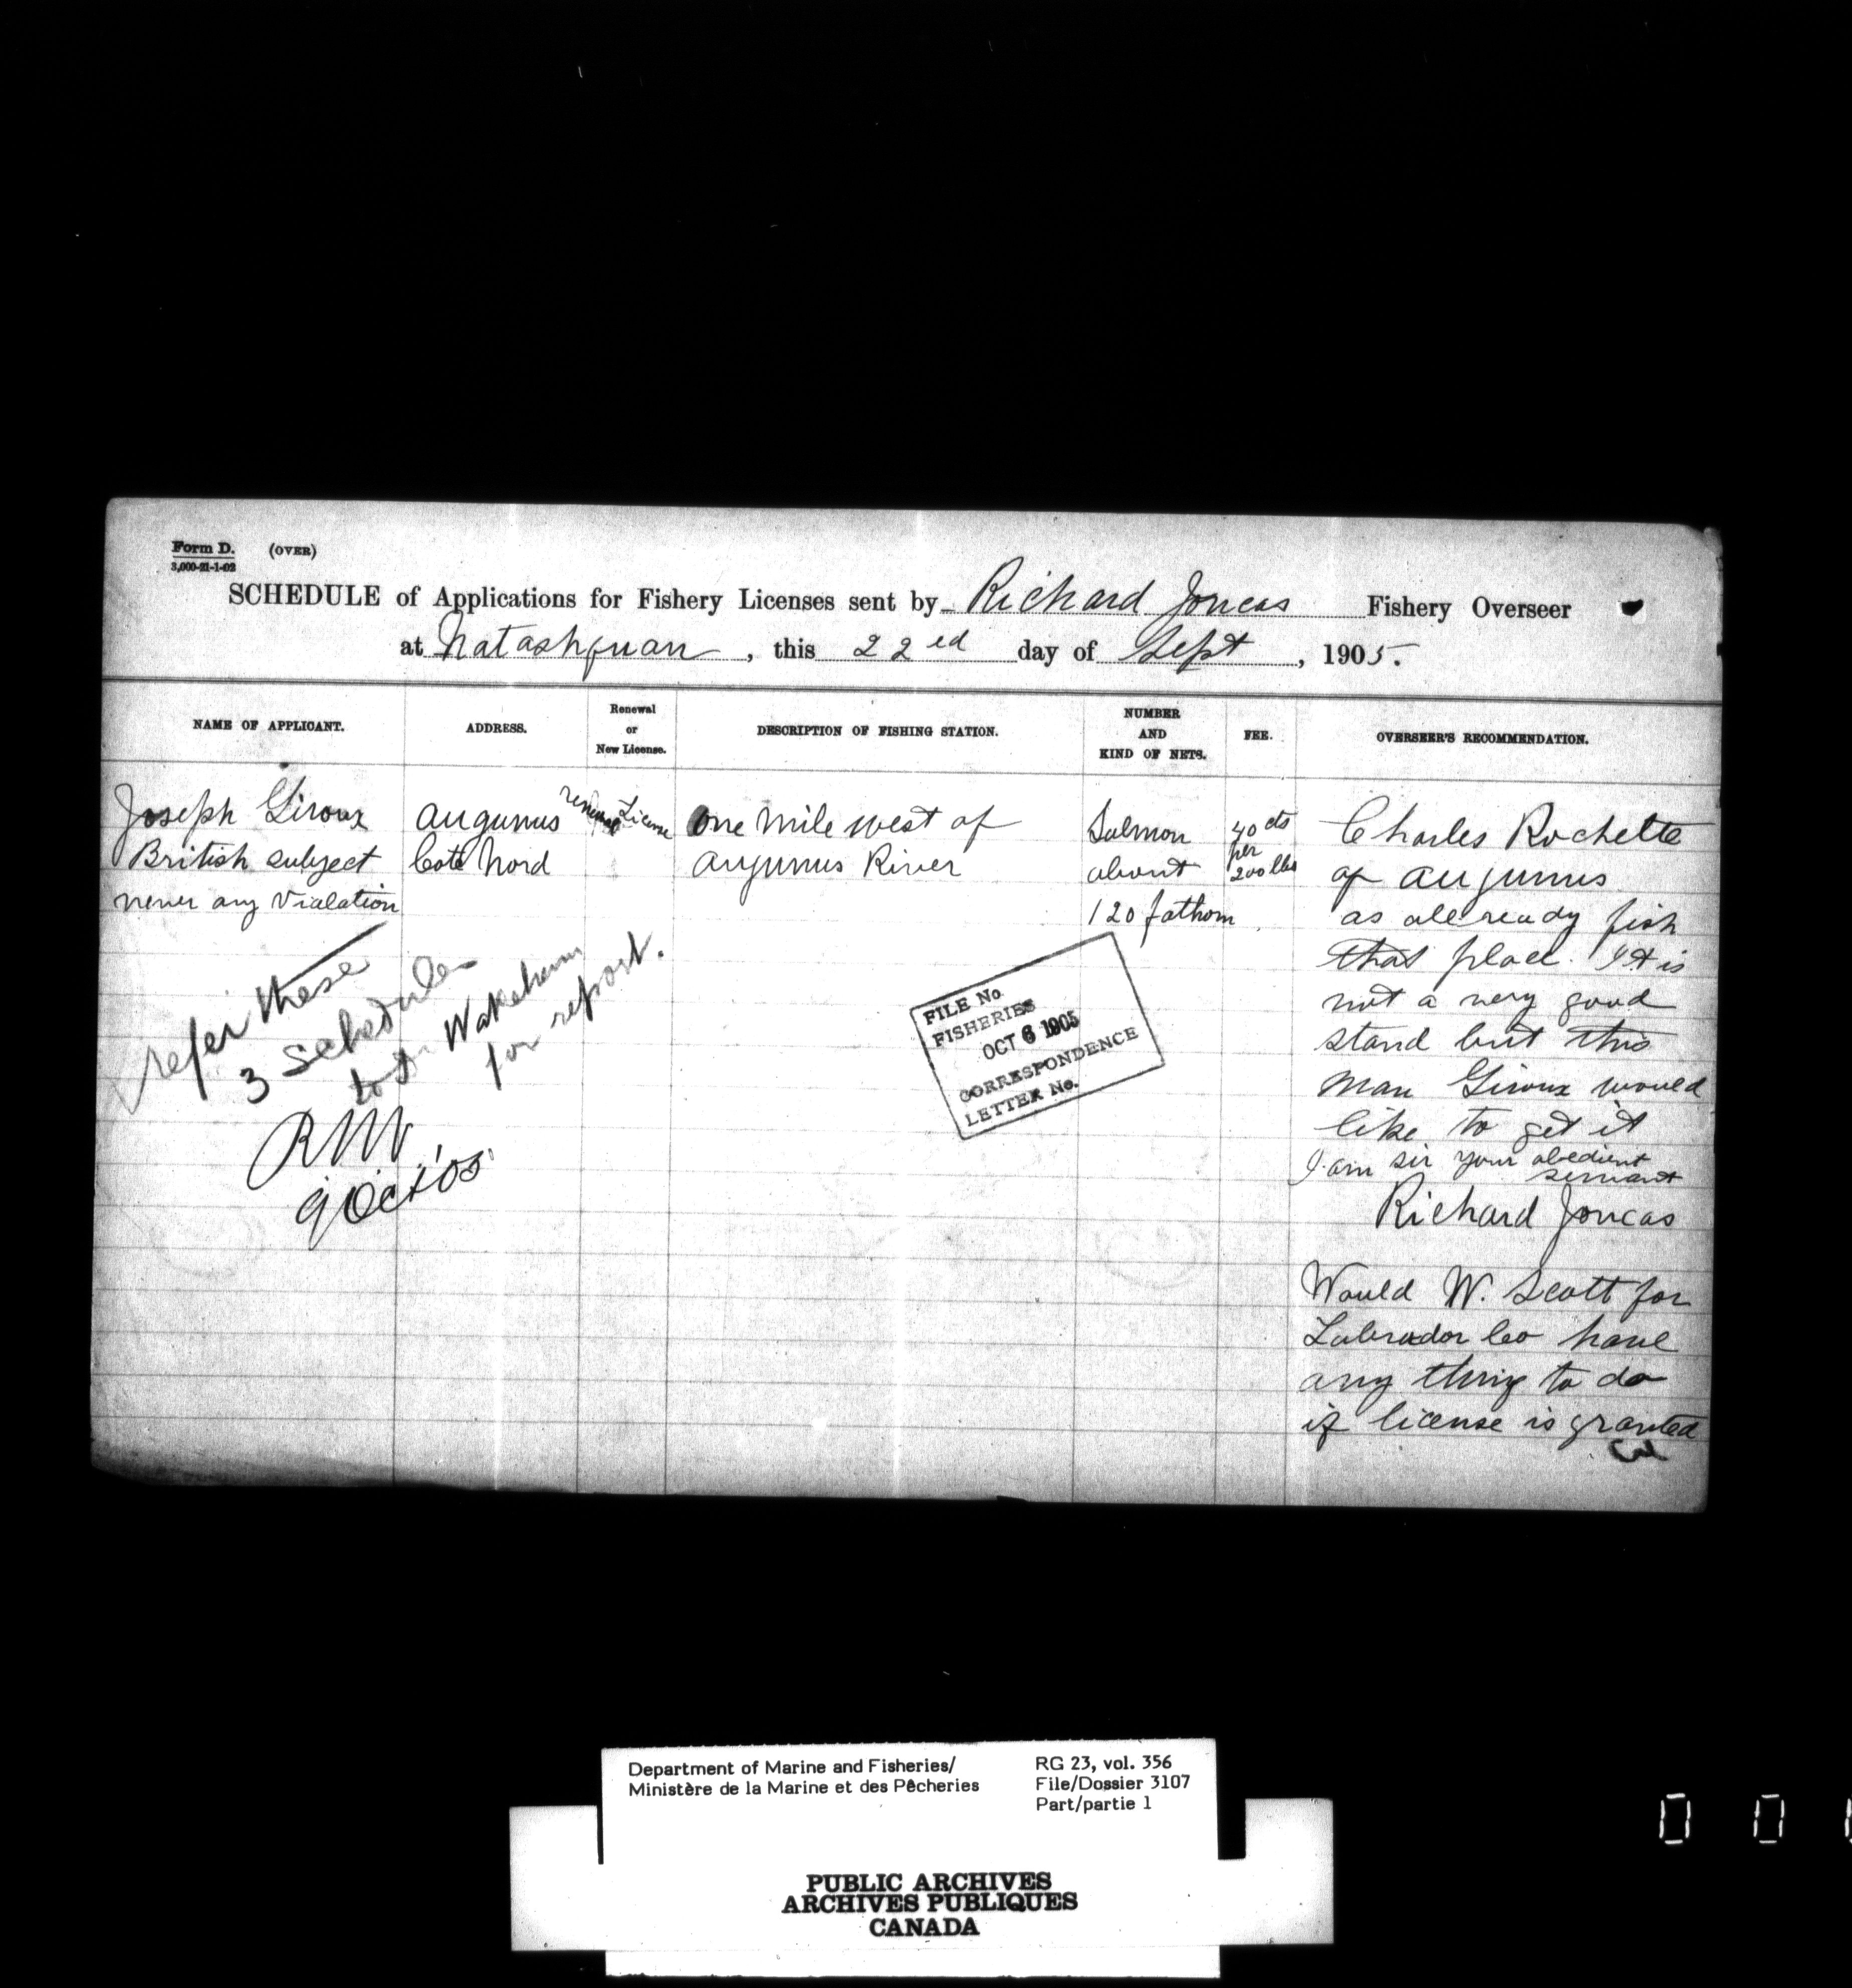 Form D. (OVER)
3,000-21-1-02
SCHEDULE of Applications for Fishery Licenses sent by Richard Joncas Fishery Overseer
at Natashquan, this 22ed day of Sept, 1905.
NAME OF APPLICANT.
ADDRESS.
Renewal
or
New License.
DESCRIPTION OF FISHING STATION.
NUMBER
AND
KIND OF NETS.
FEE.
OVERSEER'S RECOMMENDATION.
Joseph Giroux
British subject
never any Violation
Augunus
Cote Nord
renewal License
One Mile west of
Augunus River
Salmon
about
120 fathom
40 cts
per
200 lbs
Charles Rochette
of Augunus
as allready fish
that place. It is
not a very good
stand but this
Man Giroux would
like to get it
I am sir your obedient
servant
Richard Joncas
Would W. Scott for
Labrador Co have
any thing to do
if license is granted
refer these
3 schedules
to Dr Wakeham
for report.
RNV
9 Oct '05
FILE No.
FISHERIES
OCT 6 1905
CORRESPONDENCE
LETTER No.
Department of Marine and Fisheries/
Ministère de la Marine et des Pêcheries
RG 23, vol. 356
File/Dossier 3107
Part/partie 1
PUBLIC ARCHIVES
ARCHIVES PUBLIQUES
CANADA
0 0